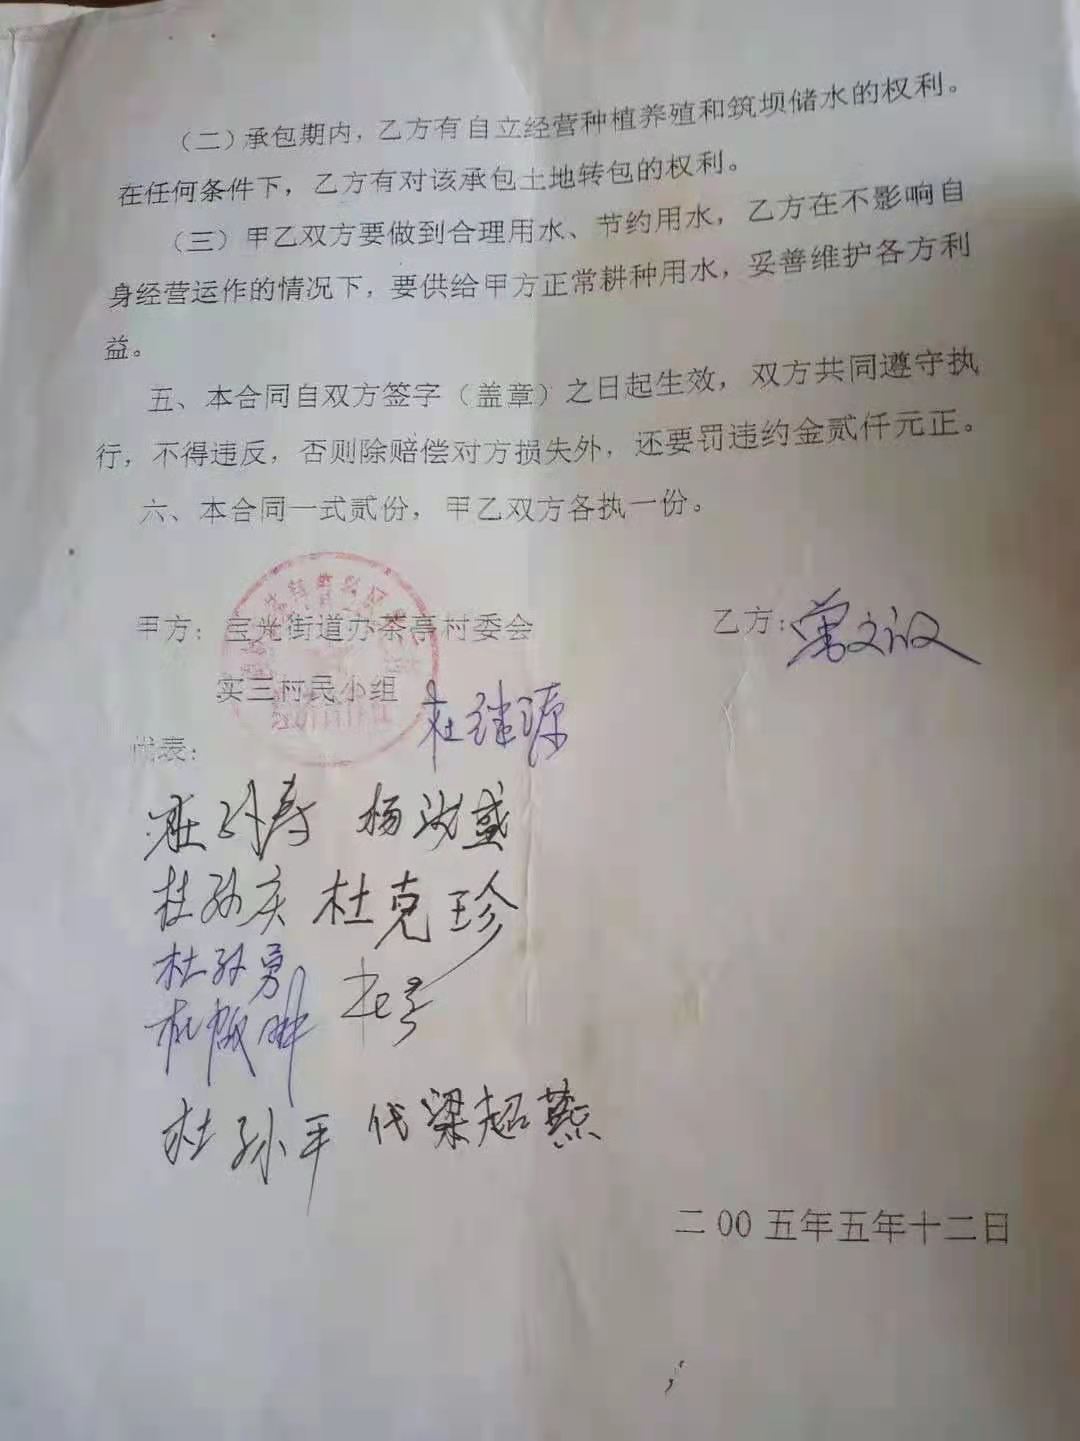 （二）承包期内，乙方有自立经营种植养殖和筑坝储水的权利。
在任何条件下，乙方有对该承包土地转包的权利。
（三）甲乙双方要做到合理用水、节约用水，乙方在不影响自
身经营运作的情况下，要供给甲方正常耕种用水，妥善维护各方利
益。
五、本合同自双方签字（盖章）之日起生效，双方共同遵守执
行，不得违反，否则除赔偿对方损失外，还要罚违约金贰仟元正。
六、本合同一式贰份，甲乙双方各执一份。
甲方：宝光街道办茶亭村委会 乙方：
实三村民小组
代表：
杜继源
杜孙寿 杨
杜孙庆 杜克珍
杜孙勇
杜孙平 代梁超燕
二00五年五年十二日